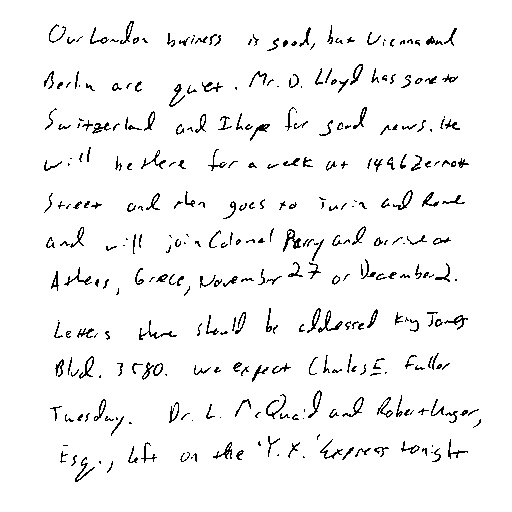 Our London business is good, but Vienna and
Berlin are quiet. Mr. D. Lloyd has gone to
Switzerland and I hope for good news. He
will be there for a week at 1496 Zermott
Street and then goes to Turin and Rome
and will join Colonel Parry and arrive at
Athens, Greece, November 27 or December 2.
Letters there should be addressed King James
Blvd. 3580. We expect Charles E. Fuller
Tuesday. Dr. L. McQuaid and Robert Unger,
Esq., left on the 'Y.X.' Express tonight